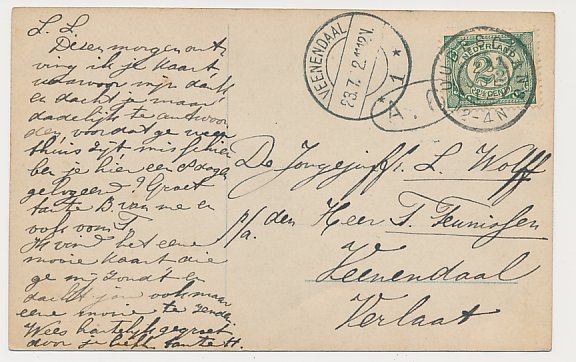 L. L.
Dezen morgen ont-
ving ik je kaart
waarvoor mijn dank
en dacht je maar
dadelijk te antwoor
den voordat ge weer
thuis zijt misschien
ben je hier een dagen
gelogeerd? Groet
tante B van me en
oofs oom T.
Ik vind het eene
mooie kaart die
ge mij zondt en
dacht jou ook maar
eene mooie te zenden
Wees hartelijk gegroet
door je liefh. tante H.
VEENENDAAL
23.7.12.11-12V.
* 1 *
*A.
NEDERLAND
2½
CENT
2-4N
De Jongejuff. L. Wolff
p/a. den Heer T. Teunissen
Veenendaal
Verlaat